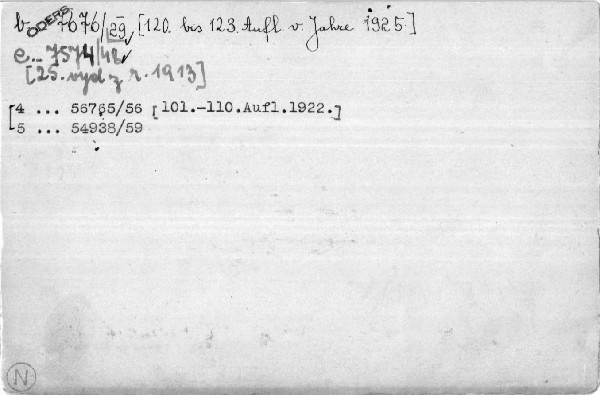 b... 7676/29 [120. bis 123. Aufl. v. Jahre 1925.]
ODERS.
e... 7574/42
[25. vyd z r. 1913]
[4 ... 56765/56 [101.-110.Aufl.1922.]
5 ... 54938/59
N